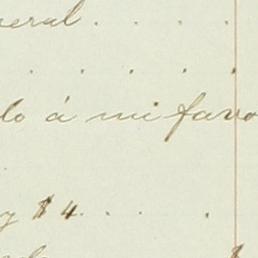 neral . . . .
. . . . .
lo á mi favo
y $4 . . .